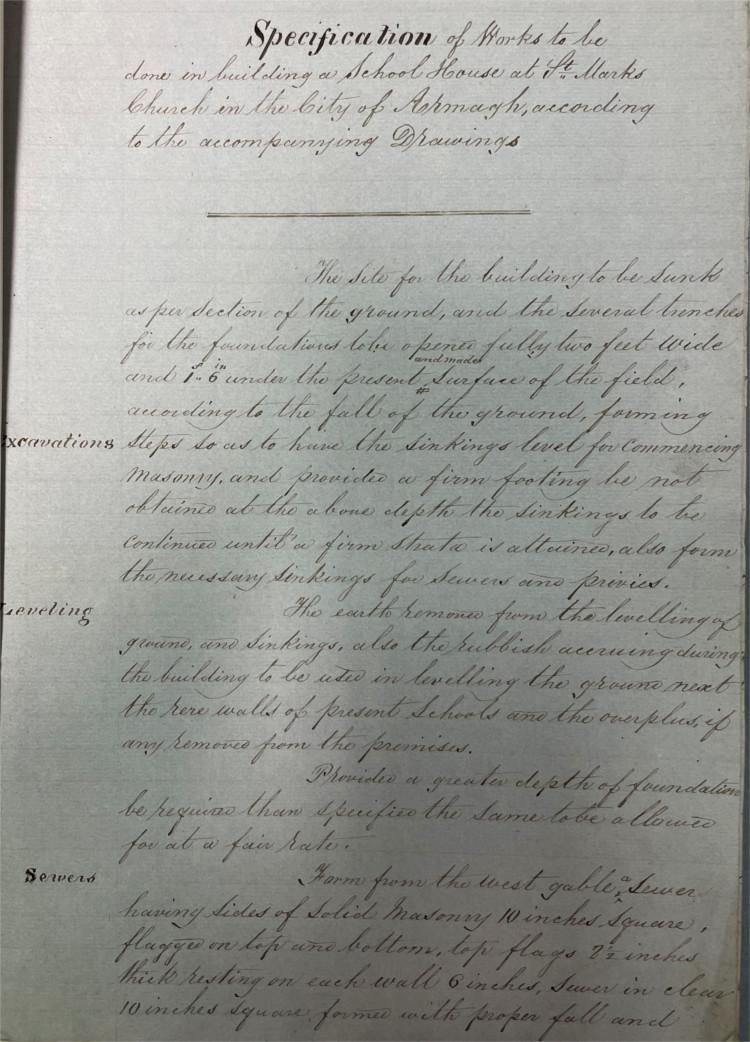 Specification of Works to be
done in building a School House at St. Marks
Church in the City of Armagh, according
to the accompanying Drawings
The site for the building to be sunk
as per section of the ground, and the several trenches
for the foundations to be opened fully two feet wide
and made
and 1f" 6in under the present surface of the field,
according to the fall of the ground, forming
Excavations steps so as to have the sinkings level for commencing
masonry, and provided a firm footing be not
obtained at the above depth the sinkings to be
continued until a firm strata is attained, also form
the necessary sinkings for sewers and privies.
Leveling The earth removed from the levelling of
ground, and sinkings, also the rubbish accruing during
the building to be used in levelling the ground next
the rere walls of present Schools and the overplus, if
any removed from the premises.
Provided a greater depth of foundation
be required than specified the same to be allowed
for at a fair rate.
Sewers Form from the west gable, a Sewer
having sides of solid Masonry 10 inches square,
flagged on top and bottom, top flags 2½ inches
thick resting on each wall 6 inches, sewer in clear
10 inches square formed with proper fall and